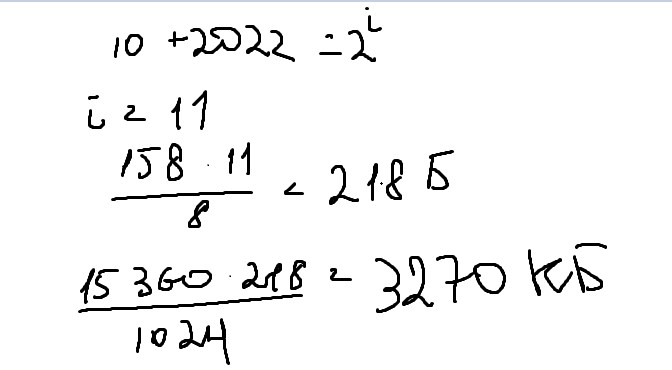 10 + 2022 = 2^i
i = 11
158 · 11 / 8 = 218 Б
15 360 · 218 / 1024 = 3270 КБ